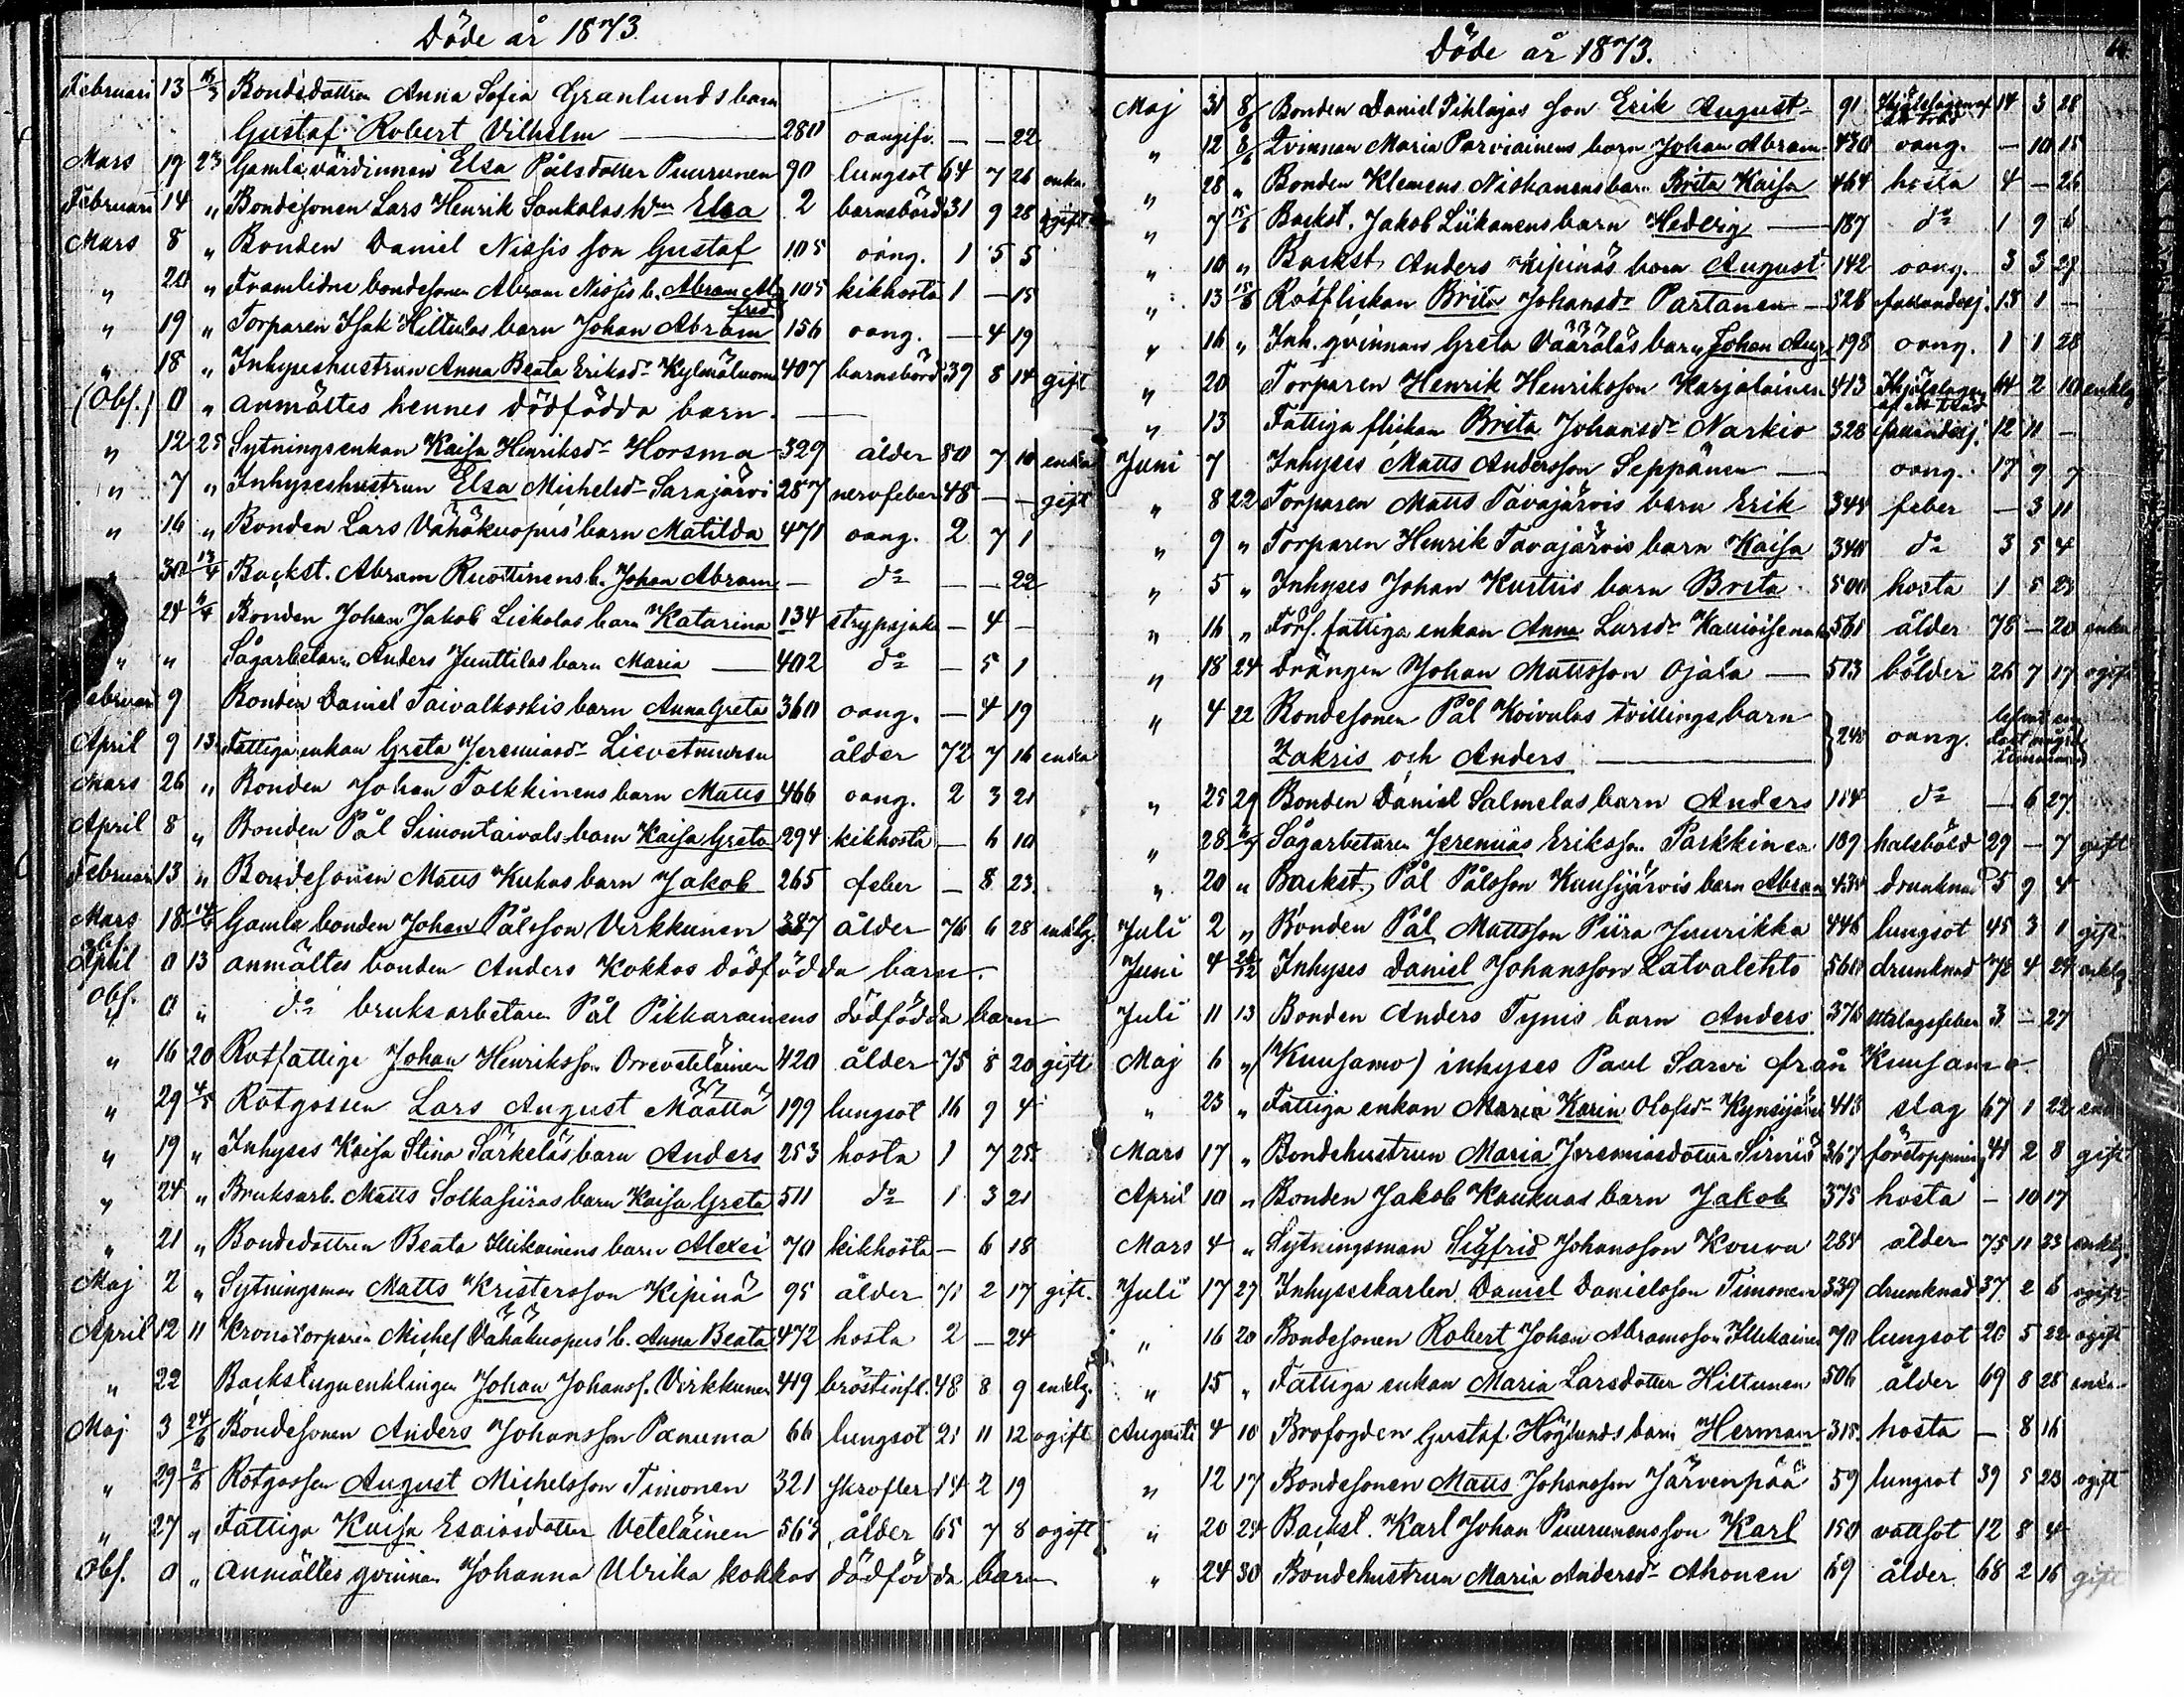 Döde år 1873.
Februari 13 16/3 Bondedottren Anna Sofia Granlunds barn
Gustaf Robert Vilhelm — 280 oangifv. — — 22
Mars 19 23 Gamla värdinnan Elsa Pålsdotter Puurunen 90 lungsot 64 7 26 enka
Februari 14 " Bondesonen Lars Henrik Sankalas h:u Elsa 2 barnsbörd 31 9 28 gift
Mars 8 " Bonden Daniel Nissis son Gustaf 105 oang. 1 5 5
" 20 " Framlidne bondesonen Abram Nissis b. Abram Alfred 105 kikhosta 1 — 15
" 19 " Torparen Isak Hiltulas barn Johan Abram 156 oang. — 4 19
" 18 " Inhyseshustrun Anna Beata Eriksd:r 407 barnsbörd 39 8 14 gift
(Obs.) 0 " anmältes hennes dödfödda barn. —
" 12 25 Sytningsenkan Kaisa Henriksd:r Horsma 329 ålder 80 7 10 enka
" 7 " Inhyseshustrun Elsa Michelsd:r Sarajärvi 287 nervfeber 48 — — gift
" 16 " Bonden Lars Vähäkuopus' barn Matilda 471 oang. 2 7 1
" 30 13/4 Backst. Abram Ruottinens b. Johan Abram — d:o — — 22
24 Bonden Johan Jakob Liekolas barn Katarina 134 strypsjuka — 4 —
" " Sågarbetaren Anders Junttilas barn Maria — 402 d:o — 5 1
Februari 9 Bonden Daniel Taivalkoskis barn Anna Greta 360 oang. — 4 19
April 9 13 Fattiga enkan Greta Jeremiasd:r ålder 72 7 16 enka
Mars 26 " Bonden Johan Tolkkinens barn Matts 466 oang. 2 3 21
April 8 " Bonden Pål Simontaivals barn Kaisa Greta 294 kikhosta — 6 10
Februari 13 " Bondesonen Matts Kuhas barn Jakob 265 feber — 8 23
Mars 18 14/4 Gamla bonden Johan Pålsson Virkkunen 387 ålder 76 6 28 enklg.
Obs.
April 0 13 anmältes bonden Anders Kokkos dödfödda barn.
Obs. 0 " d:o bruksarbetaren Pål Pikkarainens dödfödda barn
" 16 20 Rotfattige Johan Henriksson Orreveteläinen 420 ålder 75 8 20 gift
" 29 4/5 Rotgossen Lars August Määttä 199 lungsot 16 9 4
" 19 " Inhyses Kaisa Stina Särkeläs barn Anders 253 hosta 1 7 25
" 24 " Bruksarb. Matts barn Kaisa Greta 511 d:o 1 3 21
" 21 " Bondedottren Beata Illikainens barn Alexei 70 kikhosta — 6 18
Maj 2 " Sytningsman Matts Kristersson Kipinä 95 ålder 71 2 17 gift.
April 12 11 Kronotorparen Michel Vähäkuopus' b. Anna Beata 472 hosta 2 — 24
" 22 Backstuguenklingen Johan Johanss. Virkkunen 419 bröstinfl. 48 8 9 enklg.
Maj 3 24/6 Bondesonen Anders Johansson Panuma 66 lungsot 21 11 12 ogift
" 29 2/6 Rotgossen August Michelsson Timonen 321 skrofler 14 2 19
" 27 " Fattiga Kaisa Esaiasdotter Veteläinen 563 ålder 65 7 8 ogift
Obs. 0 " anmältes qvinnan Johanna Ulrika Kokkos dödfödda barn
Döde år 1873.
Maj 31 8/6 Bonden Daniel Pihlajas son Erik August 91 Ihjälslagen af ett träd 14 3 28
" 12 8/6 Qvinnan Maria Parviainens barn Johan Abram 430 oang. — 10 15
" 28 " Bonden Klemens Niskanens barn Brita Kaisa 464 hosta 4 — 26
" 7 15/6 Backst. Jakob Liikanens barn Hedvig — 187 d:o 1 9 6
" 10 " Backst. Anders Kipinäs barn August 142 oang. 3 3 29
" 13 15/6 Rotflickan Brita Johansd:r Partanen — 528 fallandesj. 13 1 —
" 16 " Inh. qvinnans Greta Vääräläs barn Johan Aug. 198 oang. 1 1 28
" 20 Torparen Henrik Henriksson Karjalainen 413 Ihjälslagen af ett träd 64 2 10 enklg
" 13 Fattiga flickan Brita Johansd:r Narkio 328 fallandesj. 12 11 —
Juni 7 Inhyses Matts Andersson Seppänen — oang. 17 9 7
" 8 22 Torparen Matts Tavajärvis barn Erik 344 feber — 3 11
" 9 " Torparen Henrik Tavajärvis barn Kaisa 340 d:o 3 5 4
" 5 " Inhyses Johan Kurtis barn Brita 500 hosta 1 5 23
" 16 " Förs. fattiga enkan Anna Larsd:r 561 ålder 78 — 20 enka
" 18 24 Drängen Johan Mattsson Ojala — 513 bölder 26 7 17 ogift
" 4 22 Bondesonen Pål Koivulas tvillingsbarn
Zakris och Anders — 240 oang.
" 25 29 Bonden Daniel Salmelas barn Anders 114 d:o — 6 27
" 28 6/7 Sågarbetaren Jeremias Eriksson Parkkinen 189 halsböld 29 — 7 gift
" 20 " Backst. Pål Pålsson Kuusijärvis barn Abram 434 drunknad 5 9 4
Juli 2 " Bonden Pål Mattsson Piira Juurikka 446 lungsot 45 3 1 gift
Juni 4 Inhyses Daniel Johansson Latvalehto 560 drunknad 72 4 24 enklg.
Juli 11 13 Bonden Anders Tynis barn Anders 376 utslagsfeber 3 — 27
Maj 6 " (Kuusamo) inhyses Paul Sarvi från Kuusamo
" 23 " Fattiga enkan Maria Karin Olofsd:r 413 slag 67 1 22 enka
Mars 17 " Bondehustrun Maria Jeremiasdotter Sirniö 367 förstoppning 41 2 8 gift
April 10 " Bonden Jakob Kaukuas barn Jakob 375 hosta — 10 17
Mars 4 " Sytningsman Sigfrid Johansson Kouva 284 ålder 75 11 23 enklg.
Juli 17 27 Inhyseskarlen Daniel Danielsson Timonen 339 drunknad 37 2 6 ogift
" 16 20 Bondesonen Robert Johan Abramsson Illikainen 70 lungsot 20 5 22 ogift
" 15 " Fattiga enkan Maria Larsdotter Hiltunen 506 ålder 69 8 28 enka
Augusti 4 10 Brofogden Gustaf Höglunds barn Herman 315 hosta — 8 16
" 12 17 Bondesonen Matts Johansson Järvenpää 59 lungsot 39 5 23 ogift
" 20 24 Backst. Karl Johan Puurunens son Karl 150 vattsot 12 8 4
" 24 30 Bondehustrun Maria Andersd:r Ahonen 69 ålder 68 2 16 gift